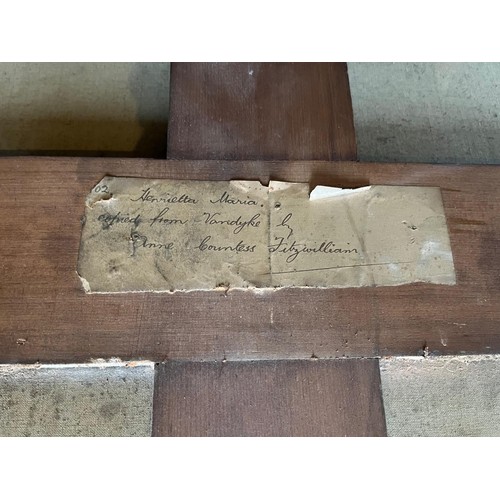 102.
Henrietta Maria.
copied from Vandyke by
Anne Countess Fitzwilliam